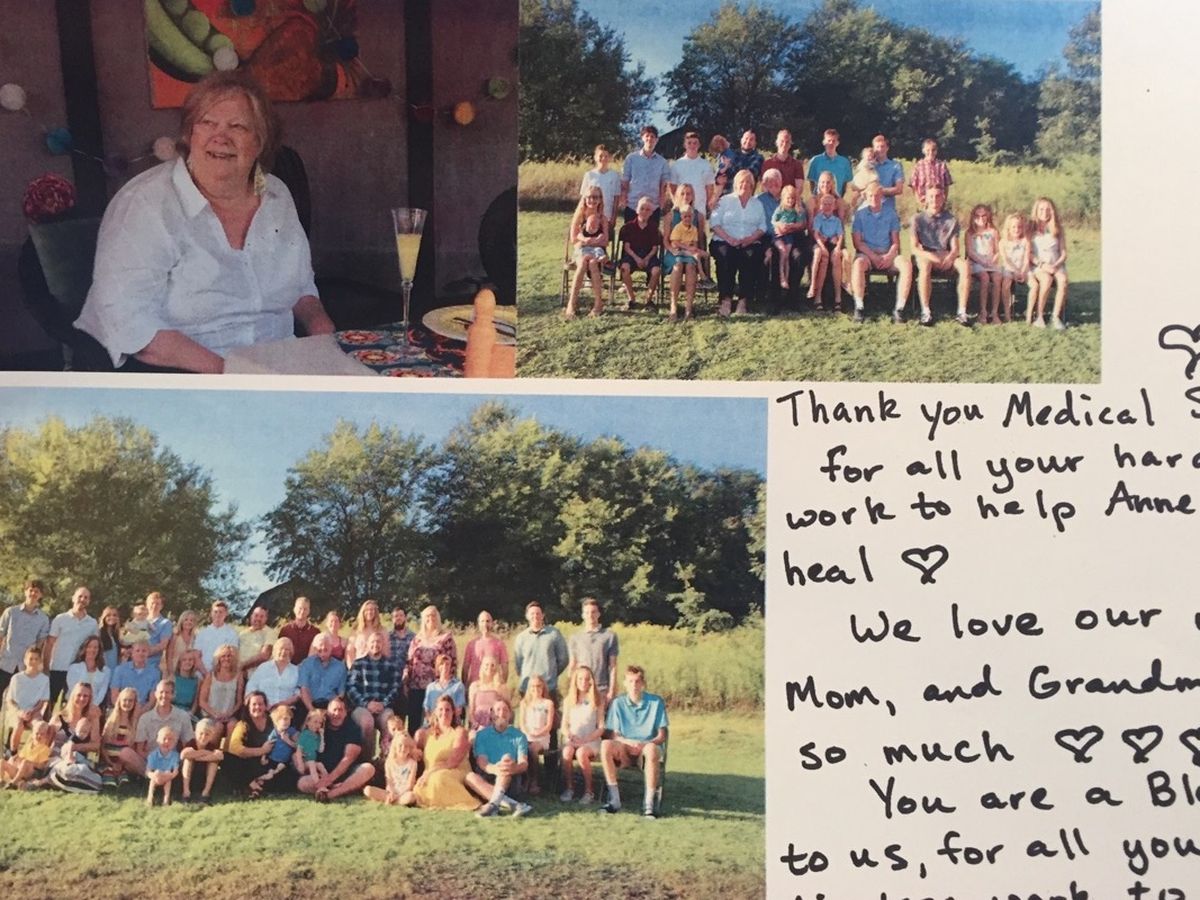 Thank you Medical
for all your hard
work to help Anne
heal
We love our
Mom, and Grandm
so much
You are a Bl
to us, for all you
work to